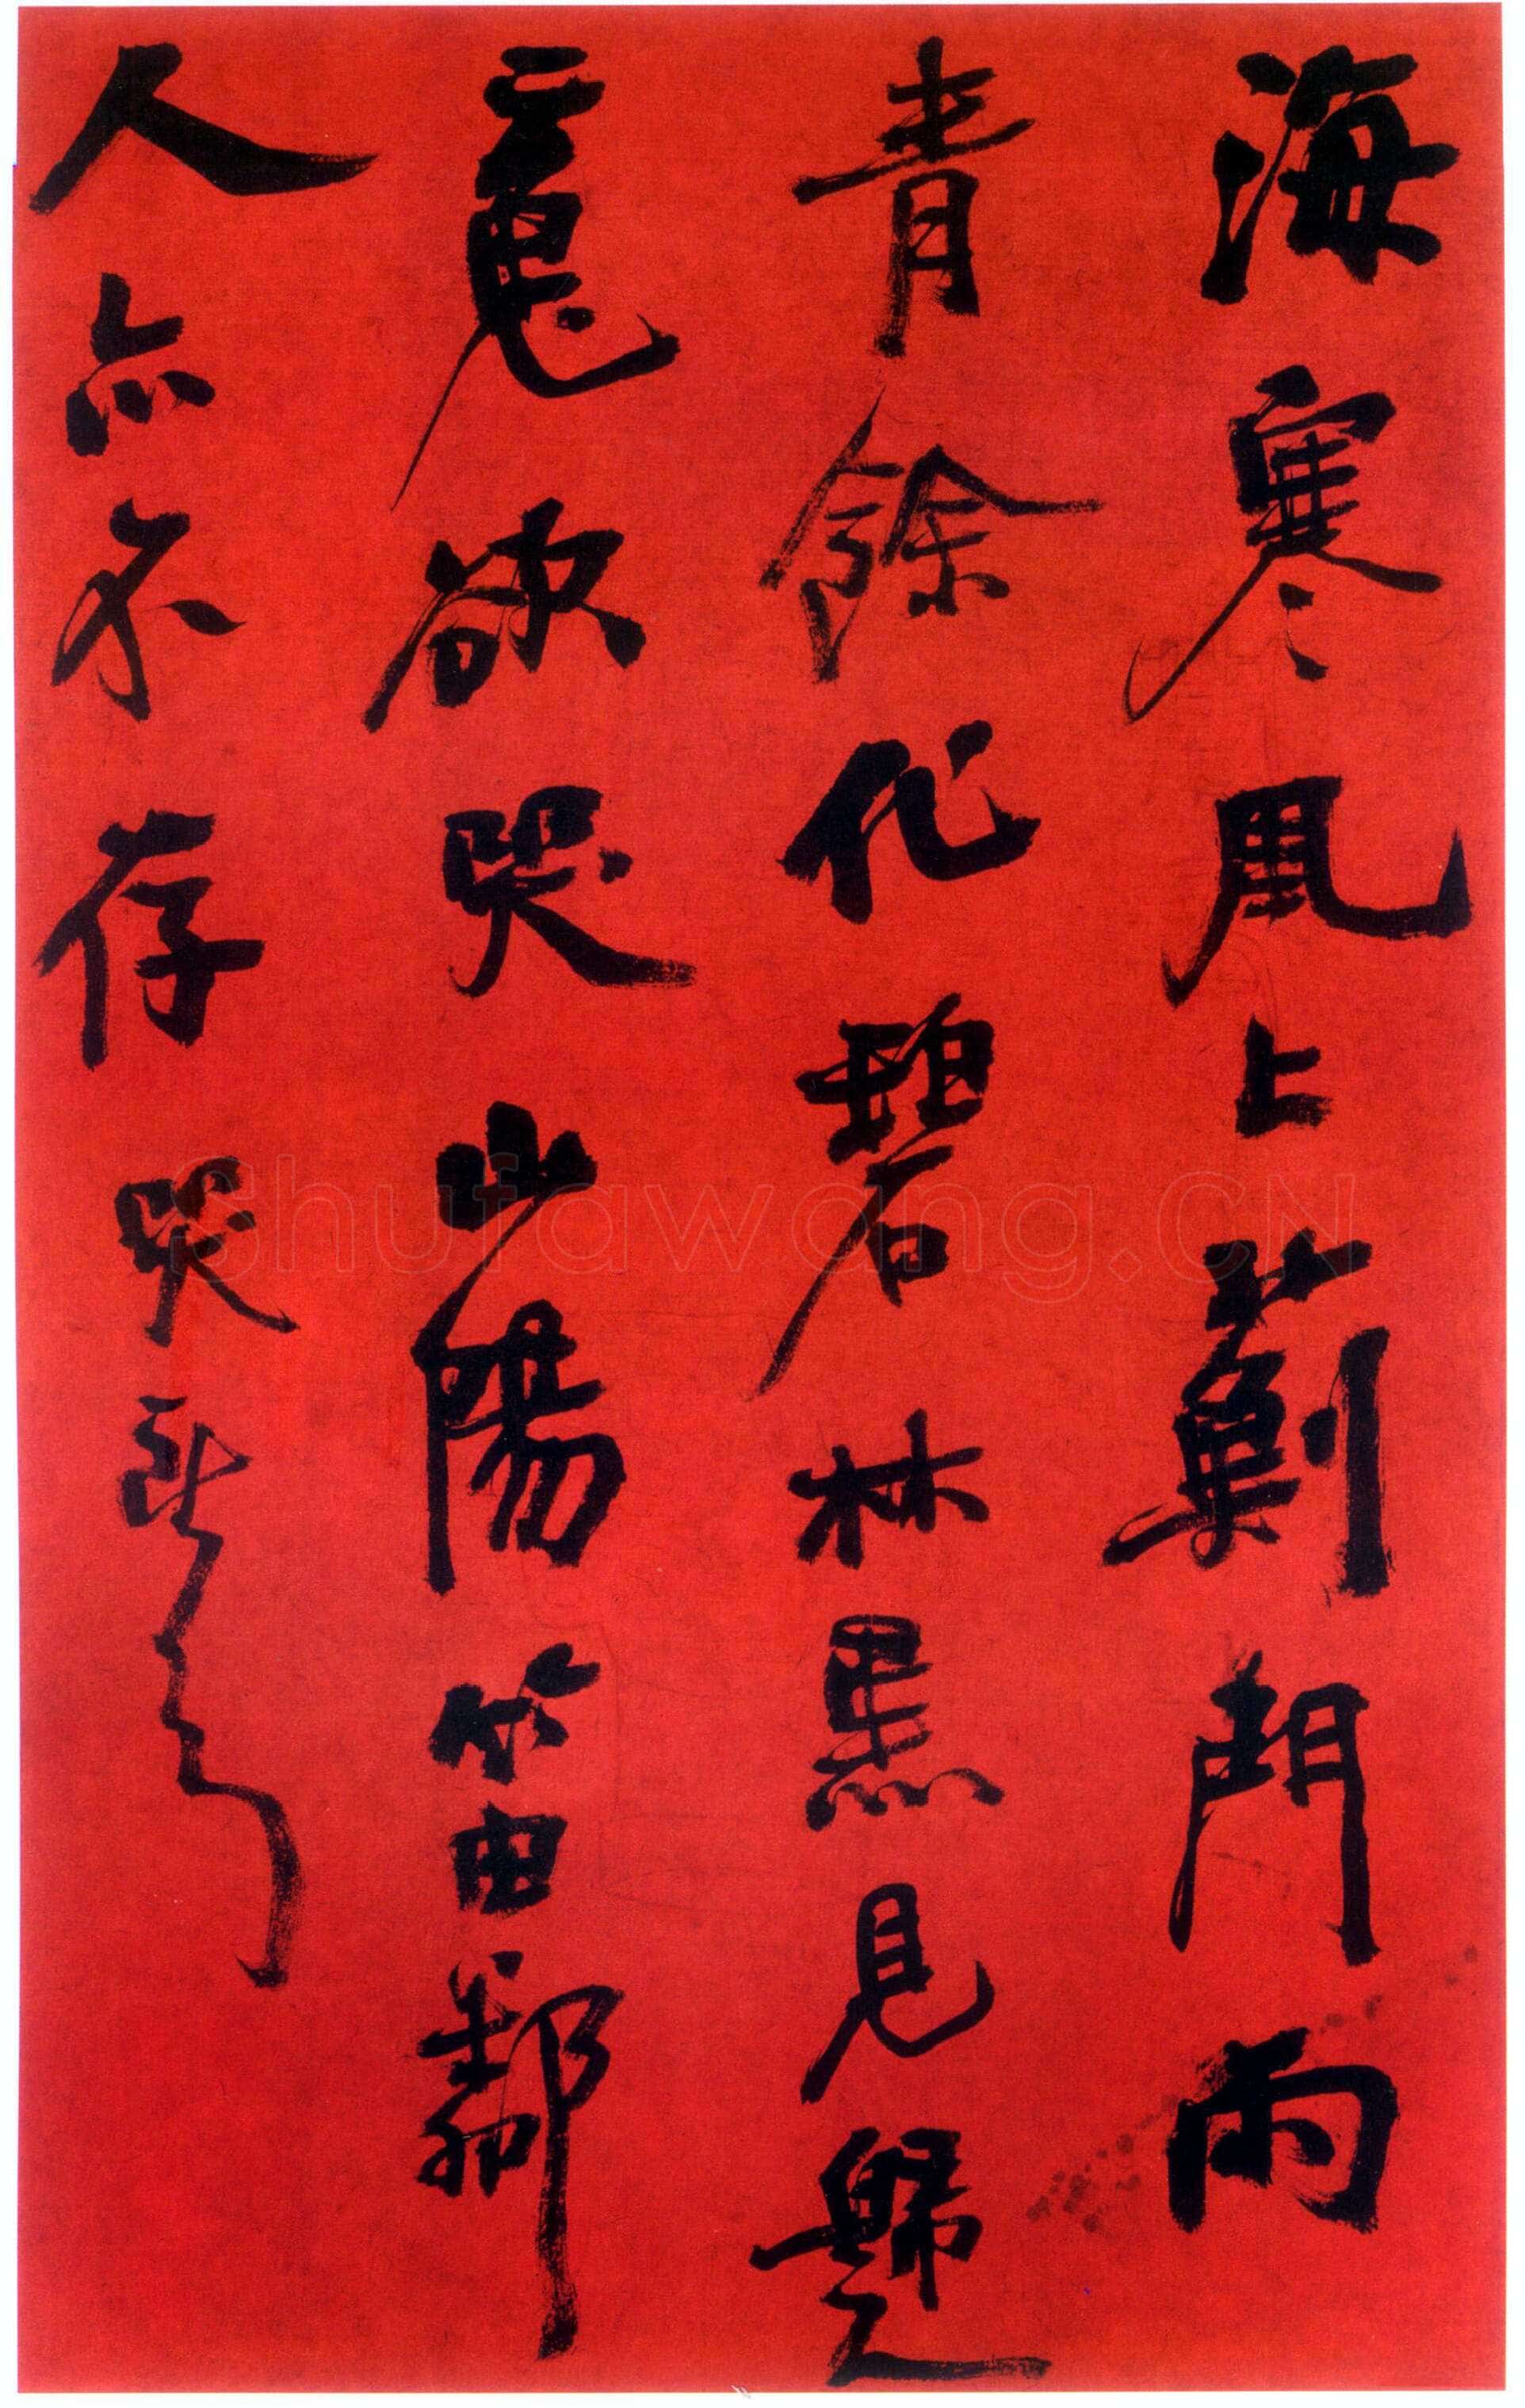 海寒風上薊門雨
青餘化碧林黑見歸
魂欲哭山陽笛鄰
人亦不存 哭
Shufawang.CN